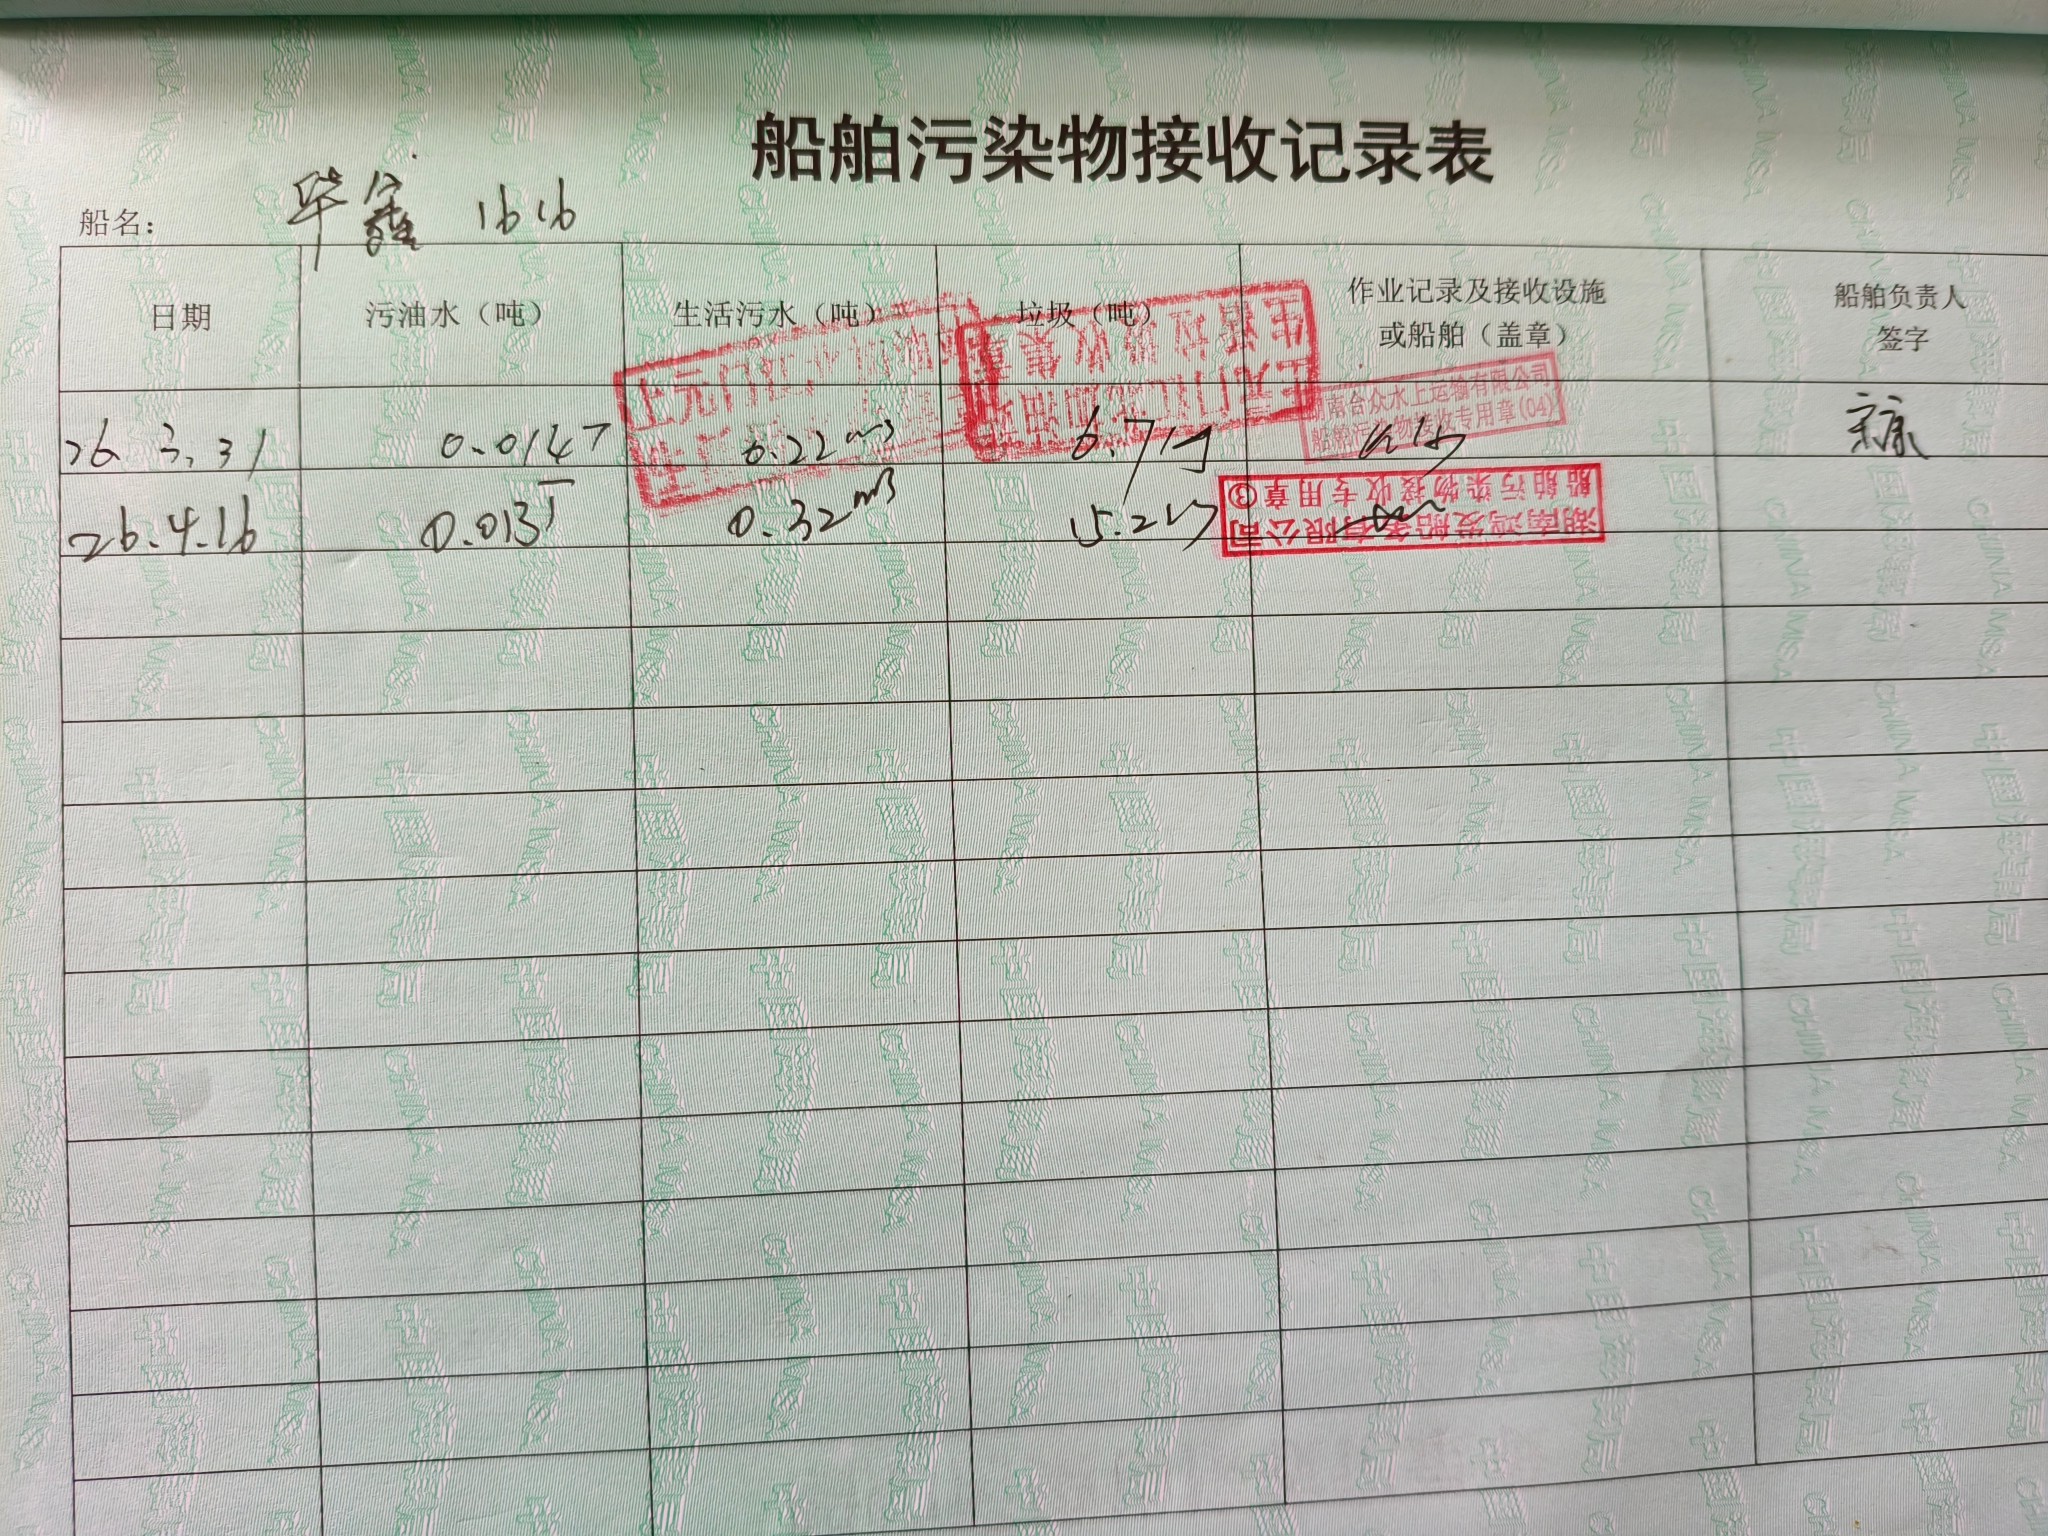 船舶污染物接收记录表
船名： 华鑫 1616
日期 污油水（吨） 生活污水（吨） 垃圾（吨） 作业记录及接收设施或船舶（盖章） 船舶负责人签字
26.3.31 0.014T 0.22m³ 6.7
26.4.16 0.013T 0.32m³ 15.2
南合众水上运输有限公司
船舶污染物接收专用章(04)
湖南鸿发船务有限公司
船舶污染物接收专用章③
中国海事局 CHINA MSA